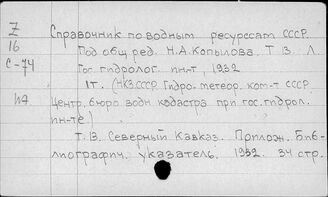 Z
16
С-74
Справочник по водным ресурсам СССР.
Под общ. ред. Н.А. Копылова. Т. 3. Л.
Гос гидролог. ин-т, 1932
1т. (НКЗ СССР. Гидро-метеор. ком-т СССР
Центр. бюро водн кадастра при гос. гидрол.
ин-те)
Т. 3. Северный Кавказ. Прилож. Биб-
лиографич. указатель. 1932. 34 стр.